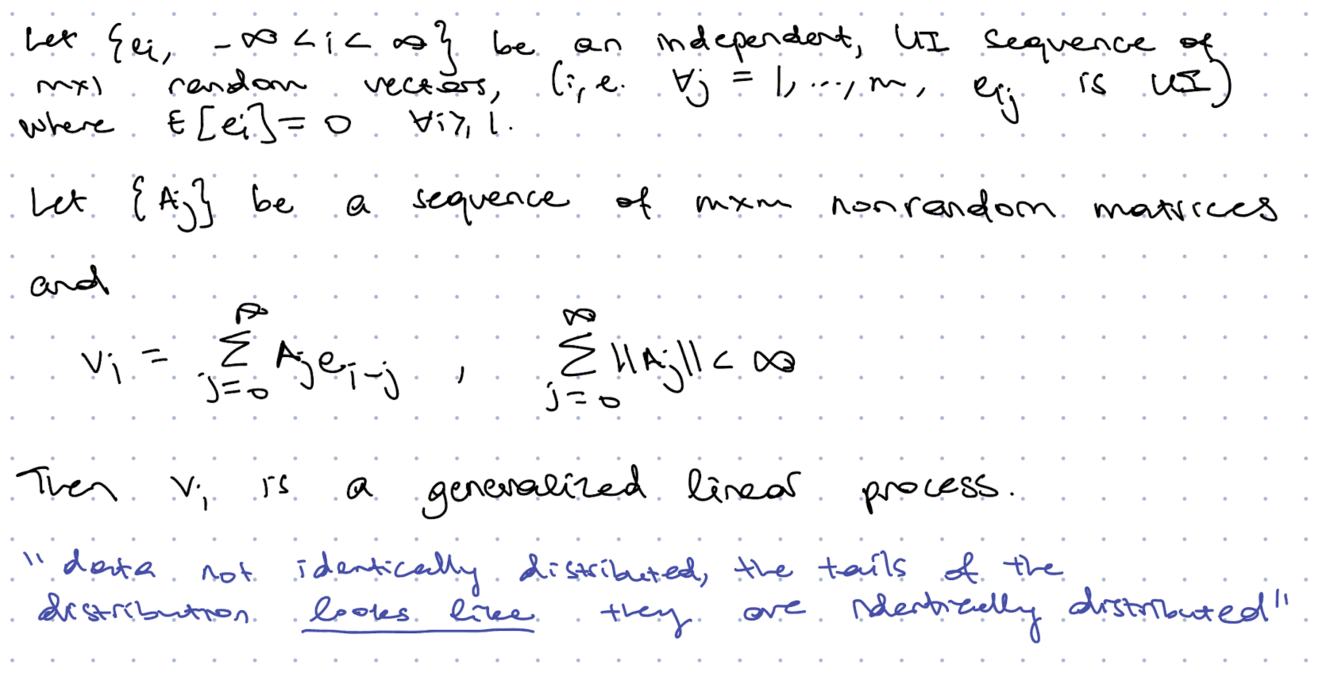 Let {ei, -∞ < i < ∞} be an independent, UI sequence of
mx1 random vectors, (i,e. ∀j = 1, ..., m, eij is UI)
where E[ei] = 0 ∀i≥1.
Let {Aj} be a sequence of mxm nonrandom matrices
and
vi = ∑_{j=0}^{∞} Aj ei-j , ∑_{j=0}^{∞} ||Aj|| < ∞
Then vi is a generalized linear process.
"data not identically distributed, the tails of the
distribution looks like they are identically distributed"